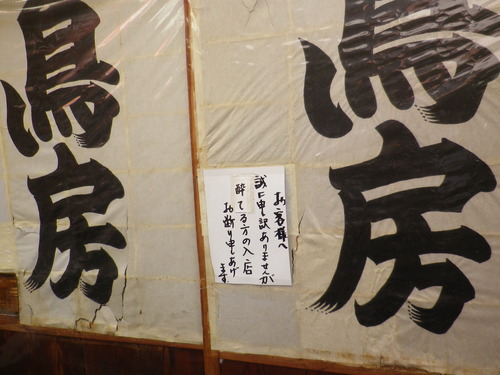 鳥房
お客様へ
誠に申し訳ありませんが
酔てる方の入店
お断り申しあげ
ます
鳥房